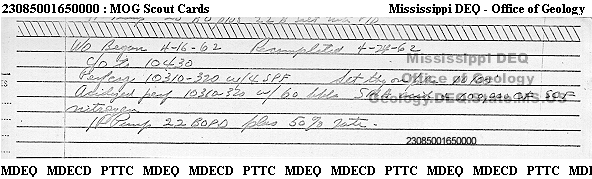 23085001650000 : MOG Scout Cards Mississippi DEQ - Office of Geology
W/O Began 4-16-62 Recompleted 4-24-62
Mississippi DEQ
C/O to 10430
Perfers 10310-320 w/4 SPF Set
Office of Geology
Acidized perf 10310-320 w/ 60 bbls
Geology.DEQ.State.MS.US
nitrogen
IP Pump 22 BOPD plus 50% wtr.
23085001650000
MDEQ MDECD PTTC MDEQ MDECD PTTC MDEQ MDECD PTTC MDEQ MD